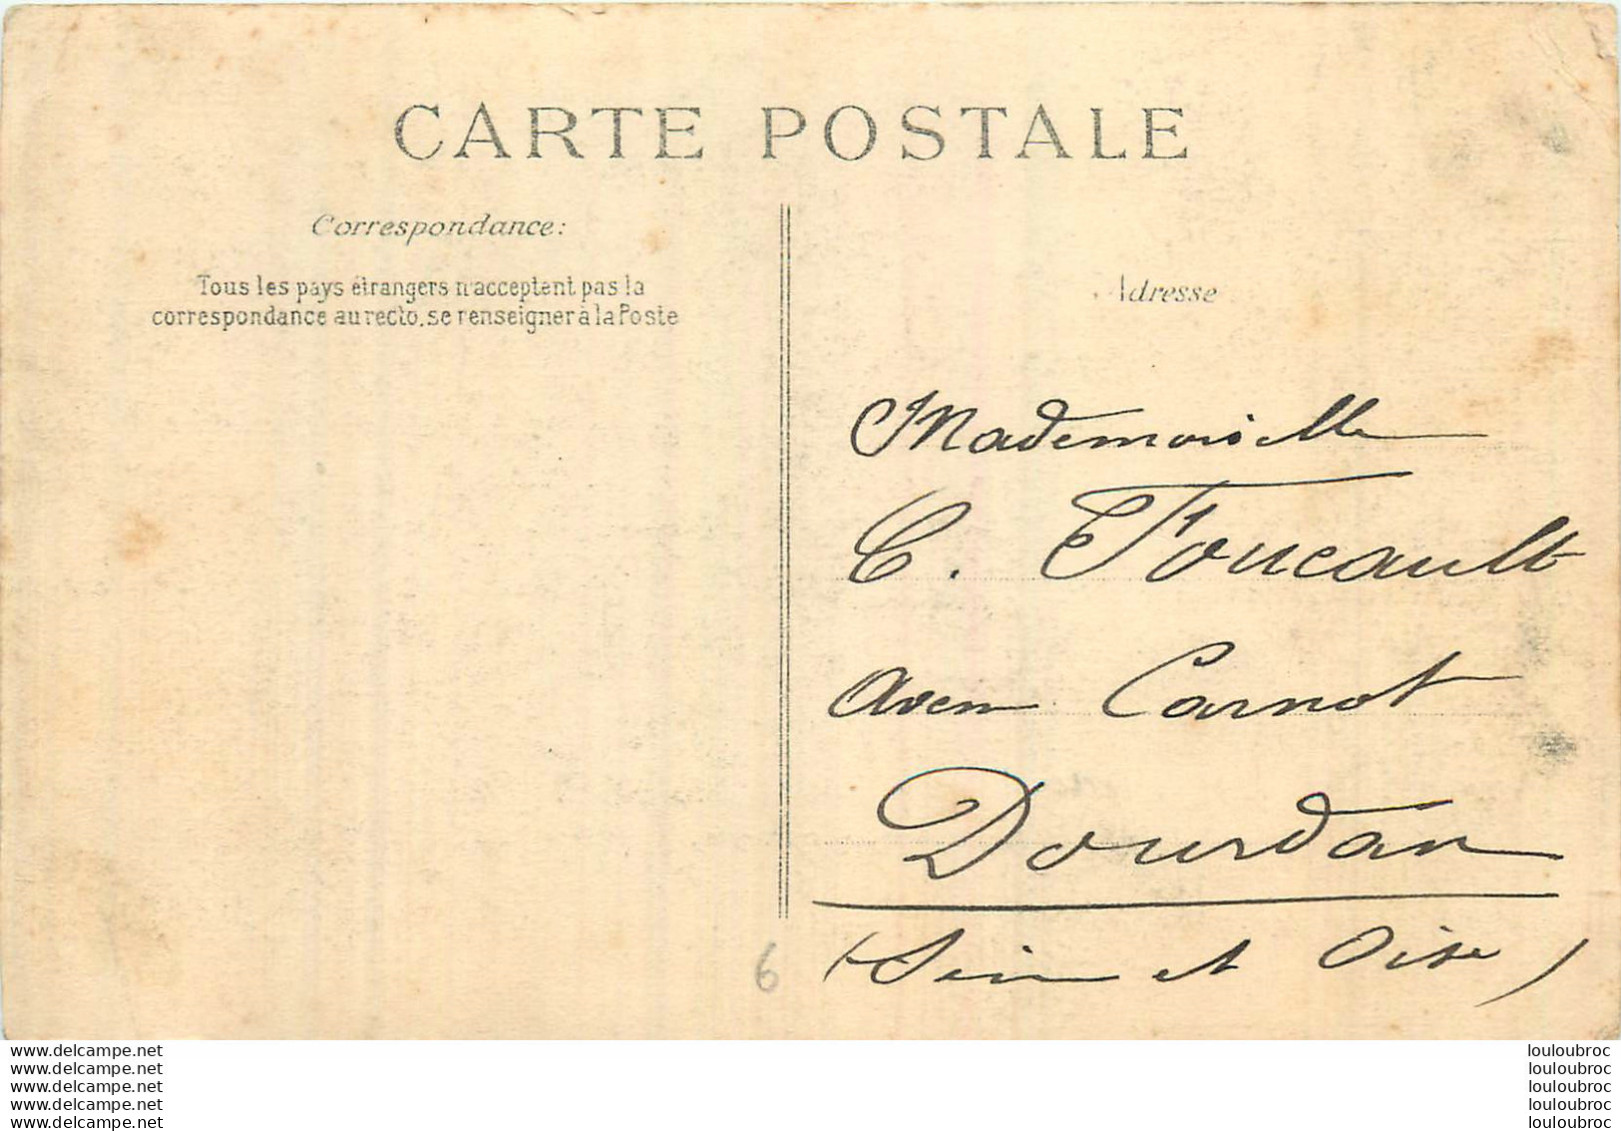 CARTE POSTALE
Correspondance:
Tous les pays étrangers n'acceptent pas la
correspondance au recto, se renseigner à la Poste
Adresse
Mademoiselle
C. Foucault
Aven Carnot
Dourdan
(Seine et Oise)
6
www.delcampe.net
www.delcampe.net
www.delcampe.net
www.delcampe.net
www.delcampe.net
louloubroc
louloubroc
louloubroc
louloubroc
louloubroc